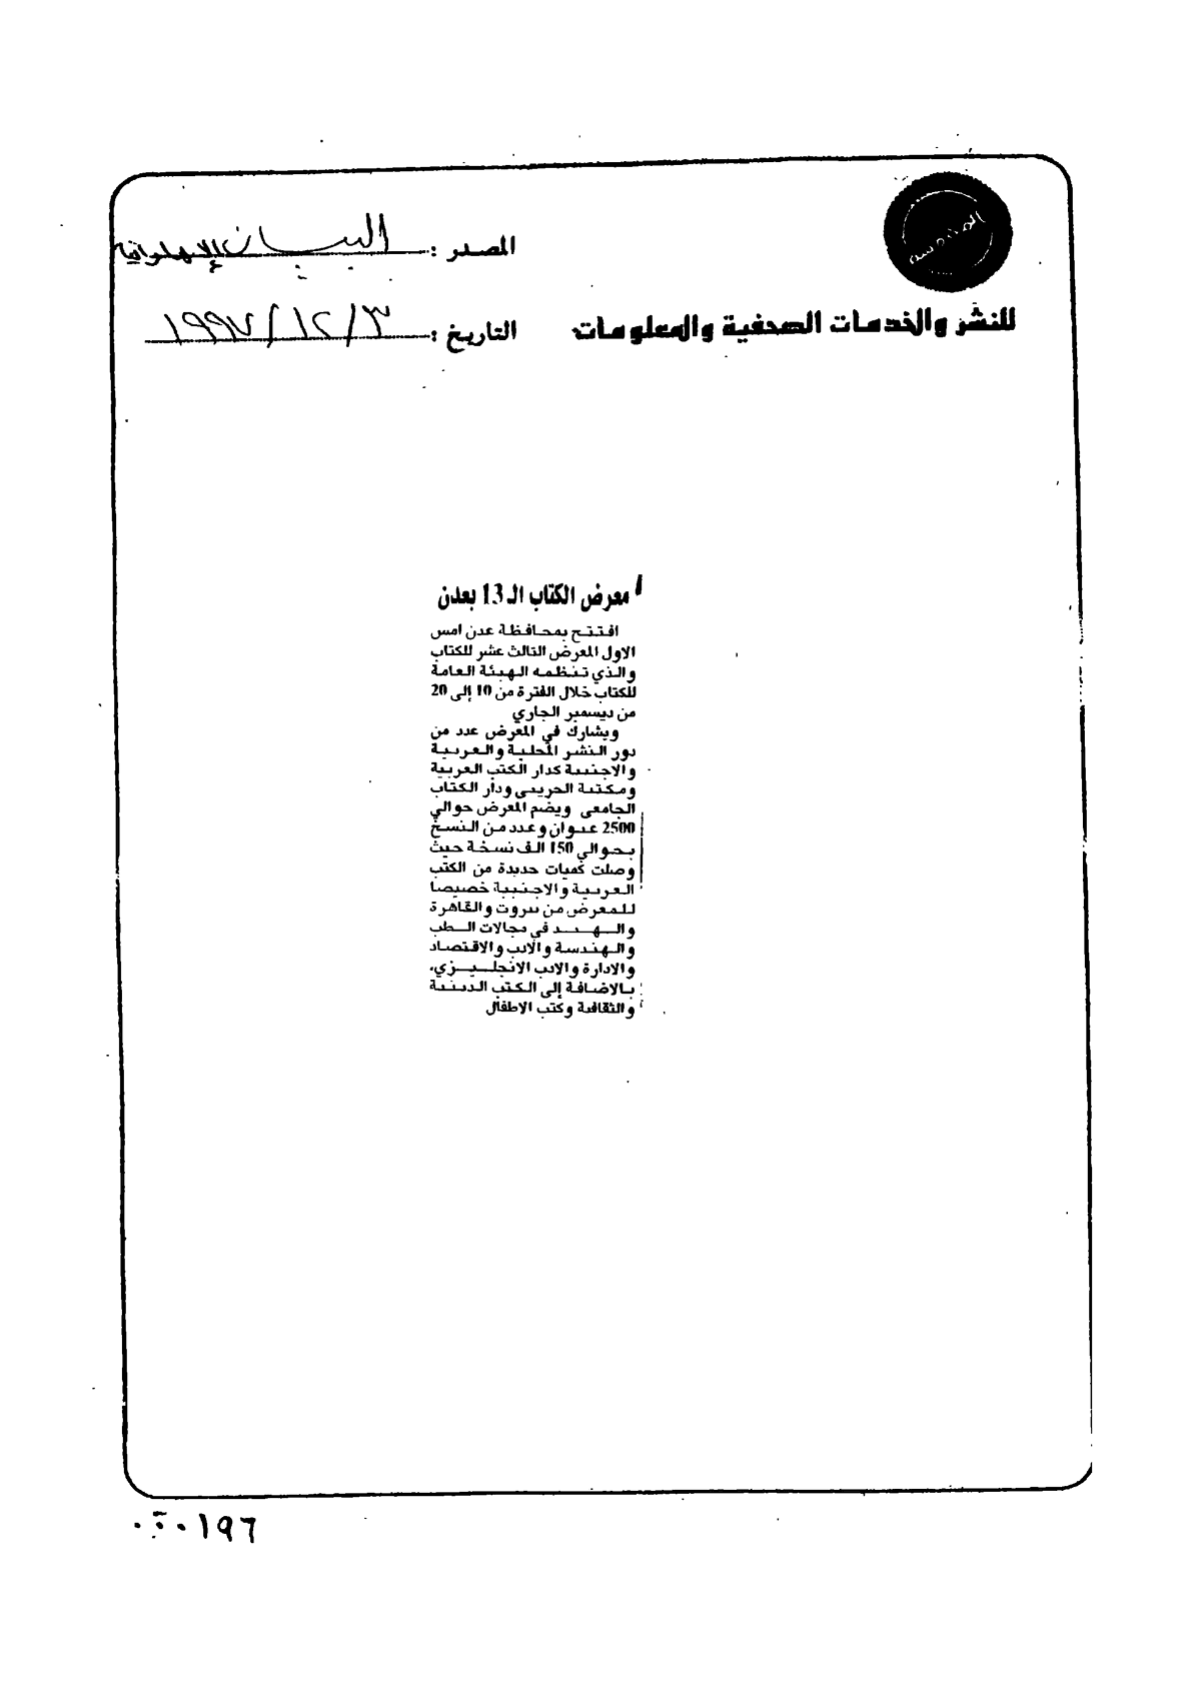 المصدر : البيان الإماراتية
للنشر والخدمات الصحفية والمعلومات
التاريخ : ٣/١٢/١٩٩٧
معرض الكتاب الـ 13 بعدن
افتتح بمحافظة عدن امس
الاول المعرض الثالث عشر للكتاب
والذي تنظمه الهيئة العامة
للكتاب خلال الفترة من 10 إلى 20
من ديسمبر الجاري
ويشارك في المعرض عدد من
دور النشر المحلية والعربية
والاجنبية كدار الكتب العربية
ومكتبة الحريبي ودار الكتاب
الجامعي ويضم المعرض حوالي
2500 عنوان وعدد من النسخ
بحوالي 150 الف نسخة حيث
وصلت كميات جديدة من الكتب
العربية والاجنبية خصيصا
للمعرض من بيروت والقاهرة
والهند في مجالات الطب
والهندسة والادب والاقتصاد
والادارة والادب الانجليزي،
بالاضافة إلى الكتب الدينية
والثقافية وكتب الاطفال